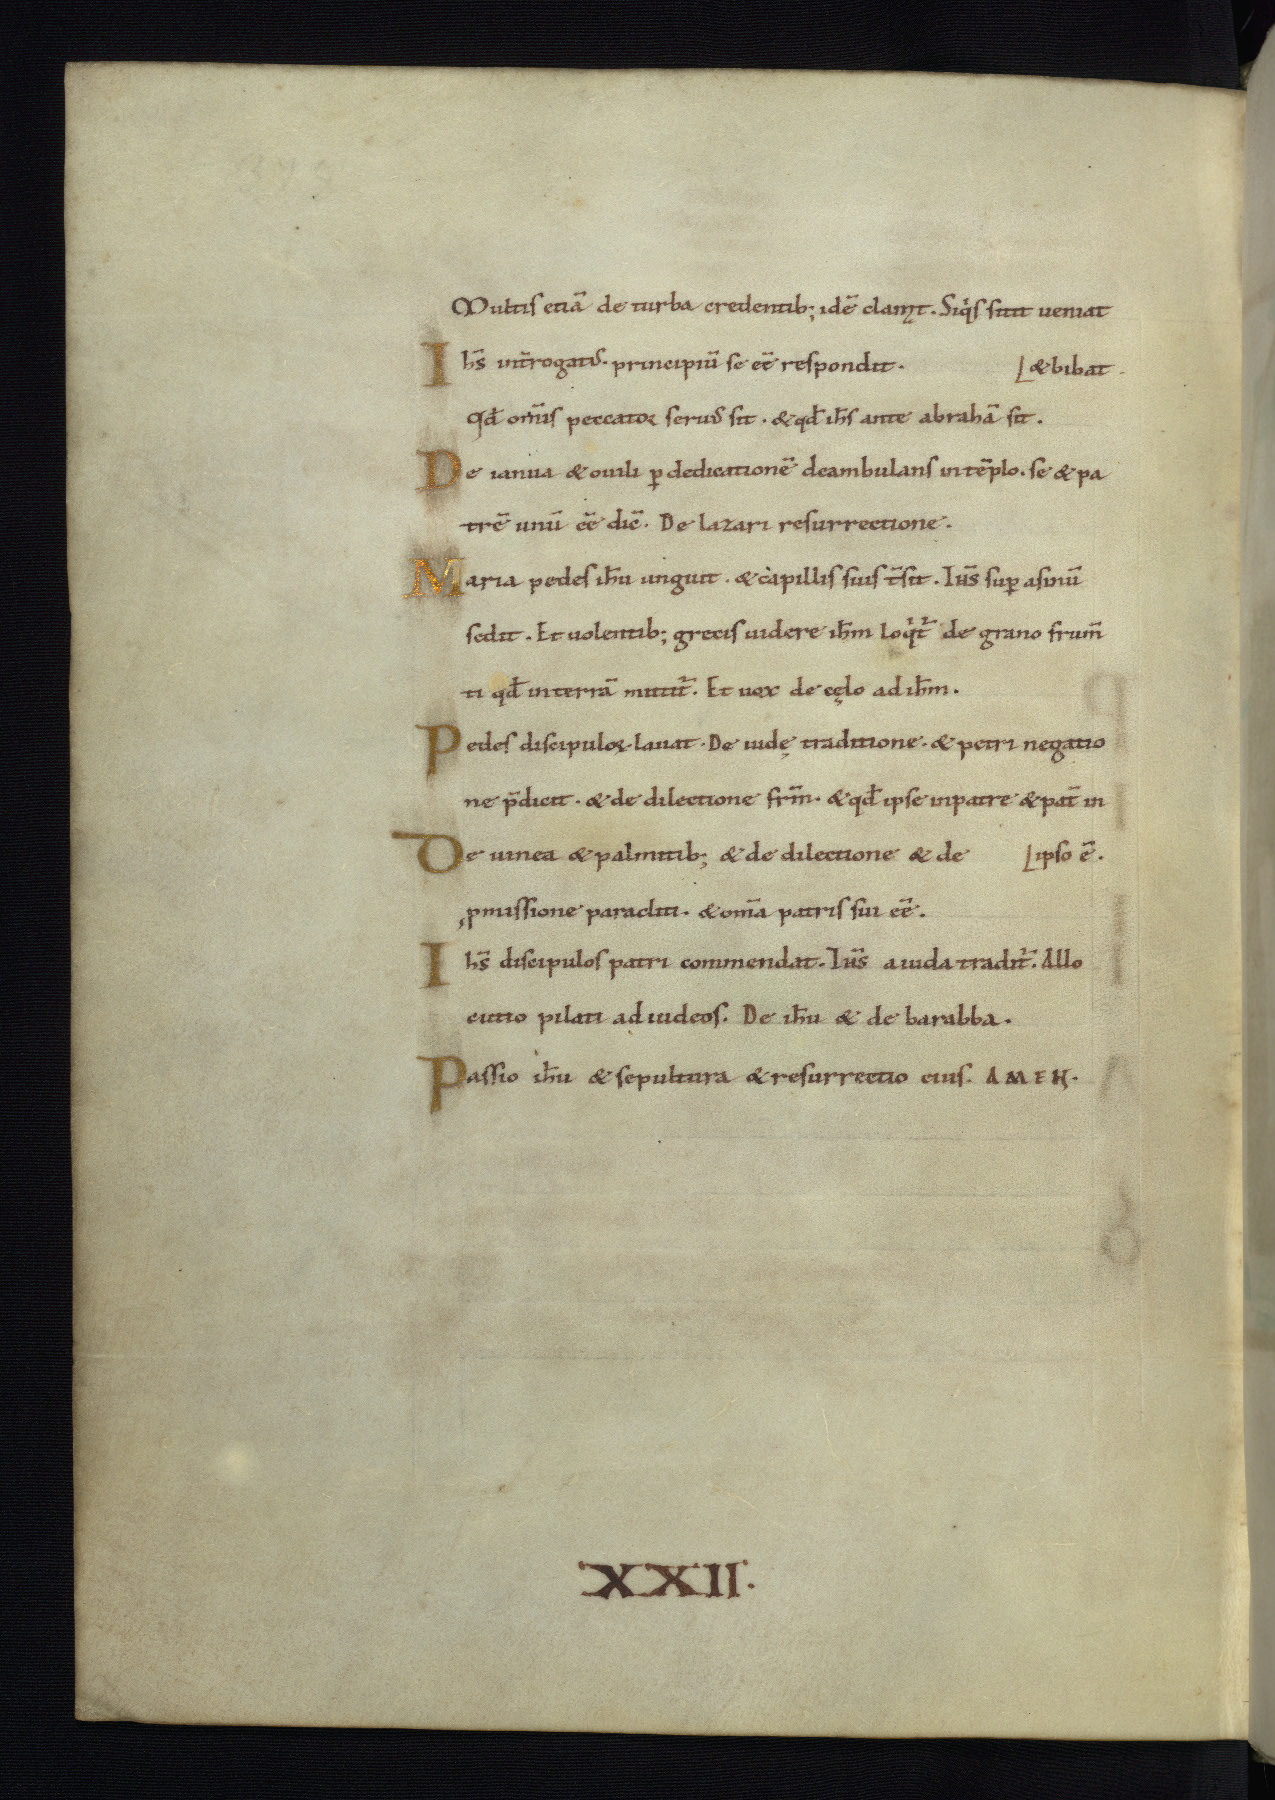 Multis etiā de turba credentib; idē clamꝫt. Siqͥs sitit ueniat
Ihs̄ int̄rogatꝰ. principiū se eē respondit. & bibat
Qđ om̄is peccator seruꝰ sit. & qđ ihs̄ ante abrahā sit.
De ianua & ouili ꝑ dedicationē deambulans in tēplo. se & pa
trē unū eē dic̄. De lazari resurrectione.
Maria pedes ihū unguit. & capillis suis t̄sit. Ihs̄ suꝑ asinū
sedit. Et uolentib; grecis uidere ihm̄ loqͥt̄ de grano frum̄
ti qđ in terrā mittit̄. Et uox de cęlo ad ihm̄.
Pedes discipuloꝝ lauat. De iudę traditione. & petri negatio
ne p̄dicit. & de dilectione frm̄. & qđ ipse in patre & pat̄ in
De uinea & palmitib; & de dilectione & de ipso ē.
ꝓmissione paracliti. & om̄a patris sui eē.
Ihs̄ discipulos patri commendat. Ihs̄ a iuda tradit̄. Allo
cutio pilati ad iudeos. De ihū & de barabba.
Passio ihū & sepultura & resurrectio eius. AMEN.
XXII.